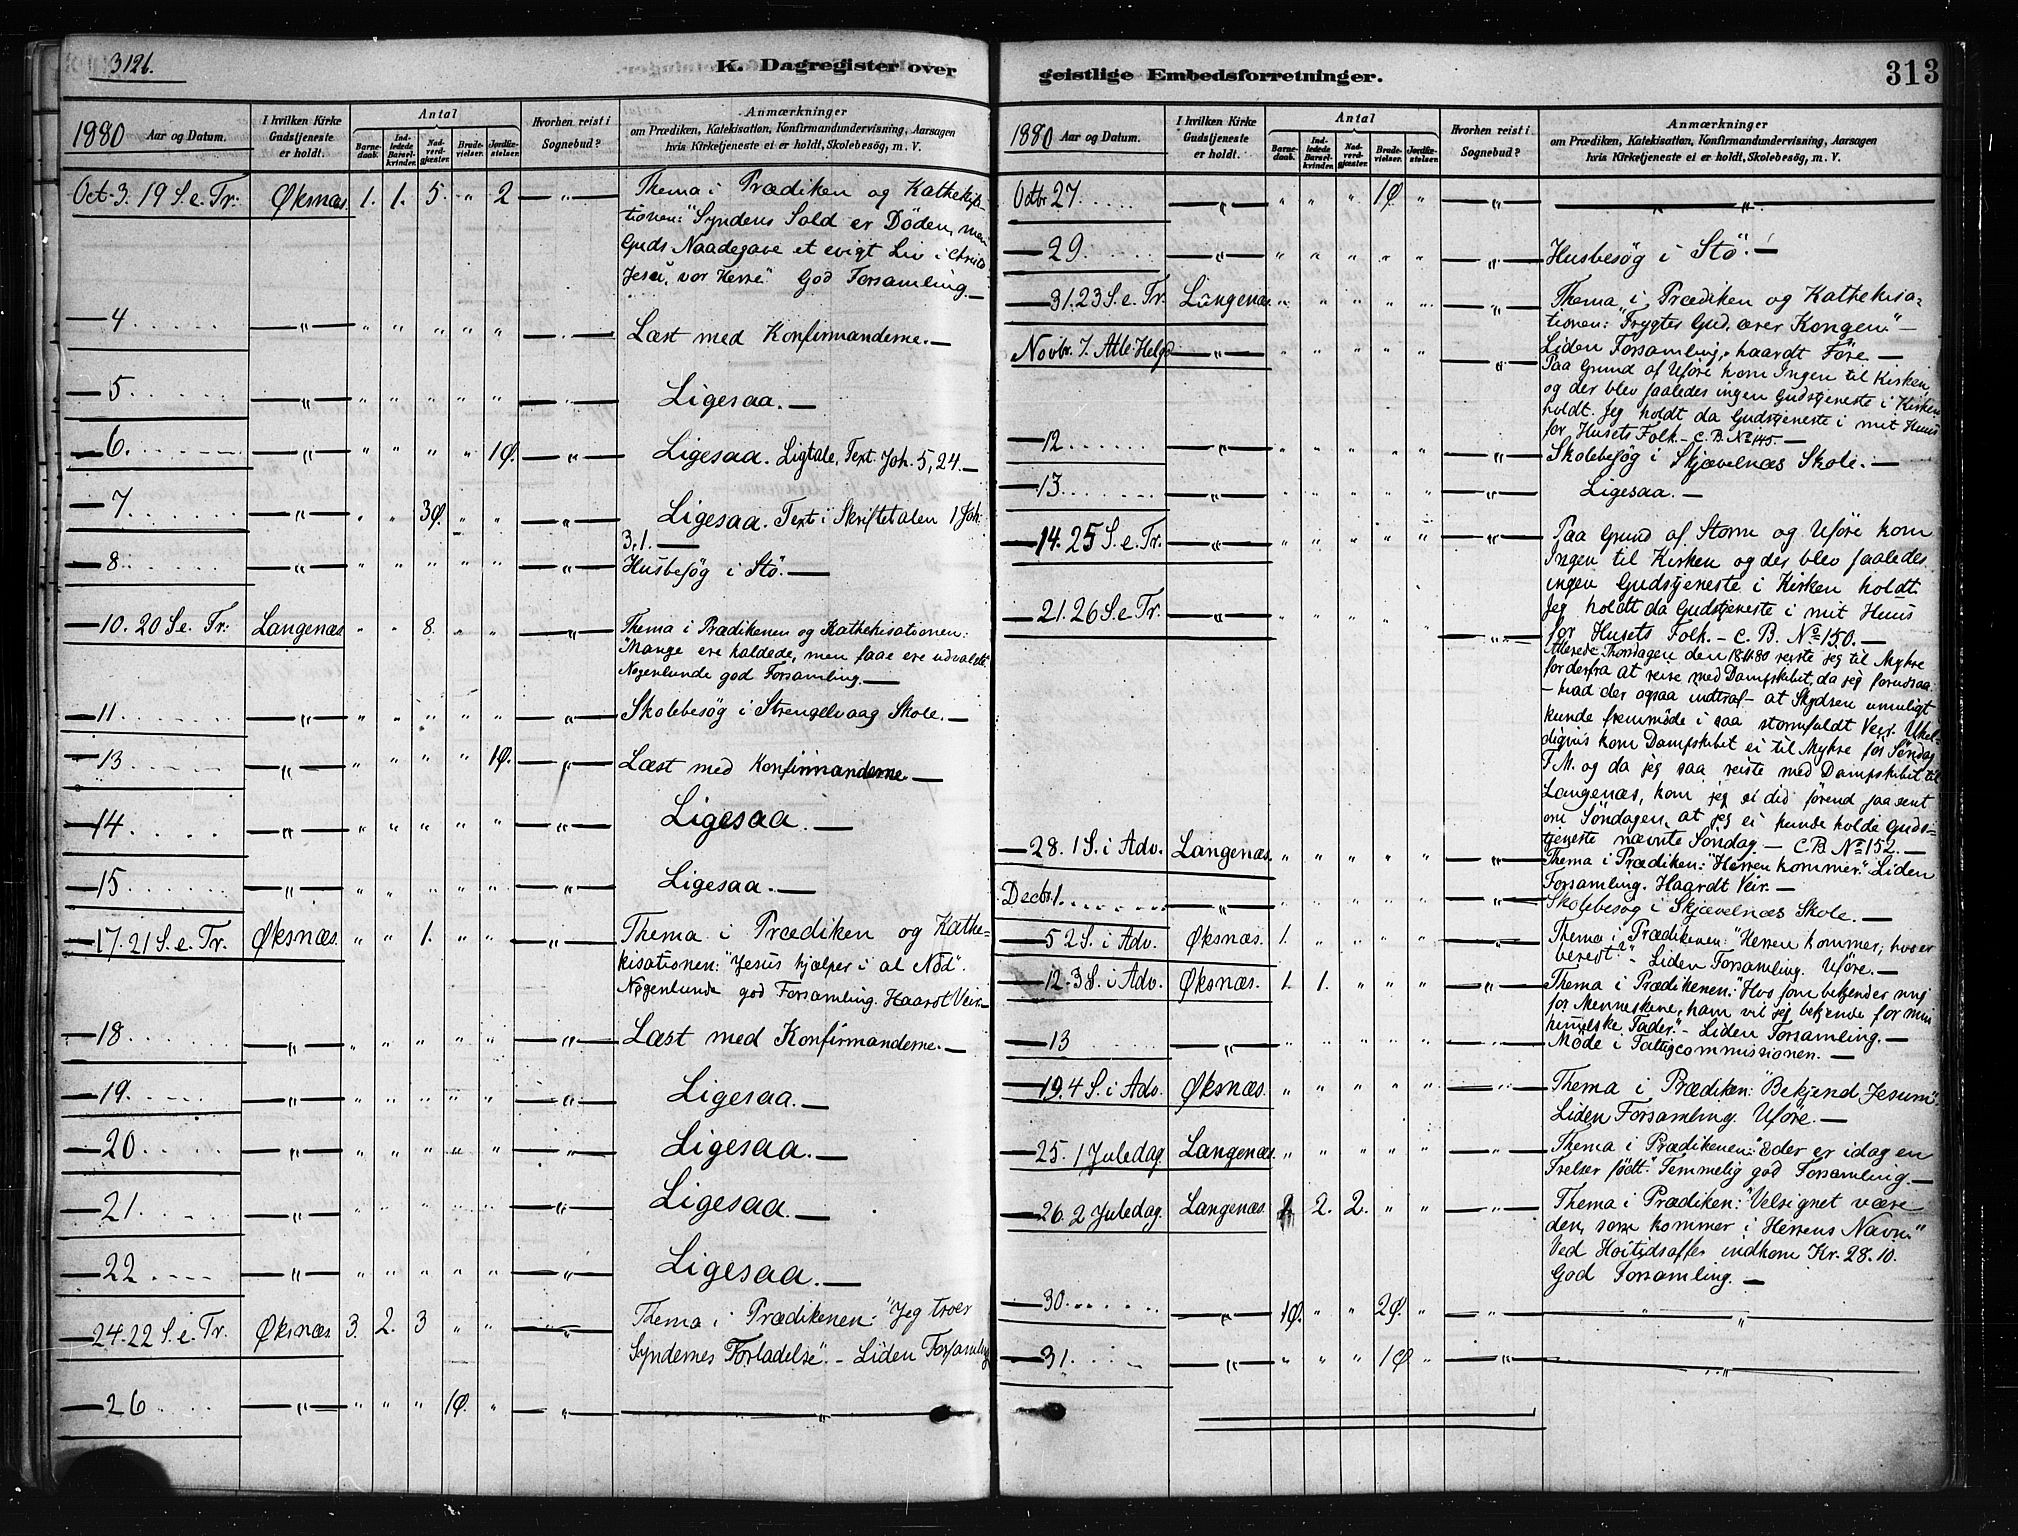 312b.
K. Dagregister over
1880 Aar og Datum.
I hvilken Kirke Gudstjeneste er holdt.
Antal
Barnedaab.
Indledede Barselkvinder.
Nadverdgjæster.
Brudevielser.
Jordfæstelser.
Hvorhen reist i Sognebud?
Anmærkninger
om Prædiken, Katekisation, Konfirmandundervisning, Aarsagen
hvis Kirketjeneste ei er holdt, Skolebesøg, m. V.
Oct. 3. 19 S. e. Tr: Øksnæs. 1. 1. 5. " 2 — " — Thema i Prædiken og Kathekisa-
tionen: "Syndens Sold er Døden, men
Guds Naadegave et evigt Liv i Christo
Jesu, vor Herre" God Forsamling. —
— 4 — " — " " " " " — " — Læst med Konfirmanderne. —
— 5 — " — " " " " " — " — Ligesaa. —
— 6 — " — " " " " 1Ø. — " — Ligesaa. Ligtale, Text Joh. 5, 24. —
— 7 — " — " " 3Ø. " " — " — Ligesaa. Text i Skriftetalen 1 Joh.
3, 1. —
— 8 — " — " " " " " — " — Husbesøg i Stö. —
— 10. 20 S. e. Tr: Langenæs " " 8. " " — " — Thema i Prædikenen og Kathekisationen:
"Mange ere kaldede, men faae ere udvalgte"
Nogenlunde god Forsamling. —
— 11 — " — " " " " " — " — Skolebesøg i Strengelvaag Skole. —
— 13 — " — " " " " 1Ø. — " — Læst med Konfirmanderne —
— 14 — " — " " " " " — " — Ligesaa. —
— 15 — " — " " " " " — " — Ligesaa. —
— 17. 21 S. e. Tr. Øksnæs. " " 1. " " — " — Thema i Prædiken og Kathe-
kisationen: "Jesus hjælper i al Nød".
Nogenlunde god Forsamling. Haardt Veir. —
— 18 — " — " " " " " — " — Læst med Konfirmanderne. —
— 19. — " — " " " " " — " — Ligesaa. —
— 20 — " — " " " " " — " — Ligesaa. —
— 21 — " — " " " " " — " — Ligesaa. —
— 22 — " — " " " " " — " — Ligesaa. —
— 24. 22 S. e. Tr. Øksnæs 3. 2. 3 " " — " — Thema i Prædikenen: "Jeg troer
Syndernes Forladelse". — Liden Forsamling
— 26 — " — " " " 1Ø. " — " — — " —
geistlige Embedsforretninger.
313
1880 Aar og Datum.
I hvilken Kirke Gudstjeneste er holdt.
Antal
Barnedaab.
Indledede Barselkvinder.
Nadverdgjæster.
Brudevielser.
Jordfæstelser.
Hvorhen reist i Sognebud?
Anmærkninger
om Prædiken, Katekisation, Konfirmandundervisning, Aarsagen
hvis Kirketjeneste ei er holdt, Skolebesøg, m. V.
Octbr. 27. — " — " " " 1Ø. " — " — — " —
— 29. — " — " " " " " — " — Husbesøg i Stö. —
— 31. 23 S. e. Tr. Langenæs. " " " " " — " — Thema i Prædiken og Kathekisa-
tionen: "Frygter Gud, ærer Kongen". —
Liden Forsamling, haardt Före —
Novbr. 7. Alle Helgd — " — " " " " " — " — Paa Grund af Uføre kom Ingen til Kirken,
og der blev saaledes ingen Gudstjeneste i Kirken
holdt. Jeg holdt da Gudstjeneste i mit Huus
for Husets Folk — C. B. No 145 —
— 12 — " — " " " " " — " — Skolebesøg i Skjævelnæs Skole. —
— 13. — " — " " " " " — " — Ligesaa. —
— 14. 25 S. e. Tr. — " — " " " " " — " — Paa Grund af Storm og Uføre kom
Ingen til Kirken og der blev saaledes
ingen Gudstjeneste i Kirken holdt.
Jeg holdt da Gudstjeneste i mit Huus
for Husets Folk. — C. B. No 150. —
— 21. 26 S. e. Tr. — " — " " " " " — " — Allerede Thorsdagen den 18.11.80 reiste jeg til Myhre
for derfra at reise med Dampskibet, da jeg forudsaa
— hvad der ogsaa indtraf — at Skydsen umuligt
kunde fremmøde i saa stormfuldt Veir. Uhel-
digvis kom Dampskibet ei til Myhre før Søndag
F. M. og da jeg saa reiste med Dampskibet til
Langenæs, kom jeg ei did førend saa sent
om Søndagen, at jeg ei kunde holde Guds-
tjeneste nævnte Søndag. — C. B. No 152. —
— 28. 1 S. i Adv. Langenæs. " " " " " — " — Thema i Prædiken: "Herren kommer". Liden
Forsamling. Haardt Veir. —
Decbr. 1. — " — " " " " " — " — Skolebesøg i Skjævelnæs Skole. —
— 5 2 S. i Adv. Øksnæs. 1. " " " " — " — Thema i Prædikenen: "Herren kommer; hvo er
beredt?" — Liden Forsamling. Uføre. —
— 12. 3 S. i Adv. Øksnæs. 1. 1. " " " — " — Thema i Prædikenen: "Hvo som bekjender mig
for Menneskene, ham vil jeg bekjende for min
himmelske Fader." — Liden Forsamling. —
— 13 — " — " " " " " — " — Møde i Fattigcommissionen. —
— 19. 4 S. i Adv. Øksnæs. " " " " " — " — Thema i Prædiken: "Bekjend Jesum".
Liden Forsamling. Uføre. —
— 25. 1 Juledag Langenæs. " " " " " — " — Thema i Prædikenen: "Eder er idag en
Frelser født." Temmelig god Forsamling. —
— 26. 2 Juledag. Langenæs. 2 2. 2. " " — " — Thema i Prædiken: "Velsignet være
den, som kommer i Herrens Navn"
Ved Höitidsoffer indkom Kr. 28.10.
God Forsamling. —
— 30. — " — 1Ø. " " 2Ø. " — " — — " —
— 31. — " — " " " 1Ø " — " — — " —